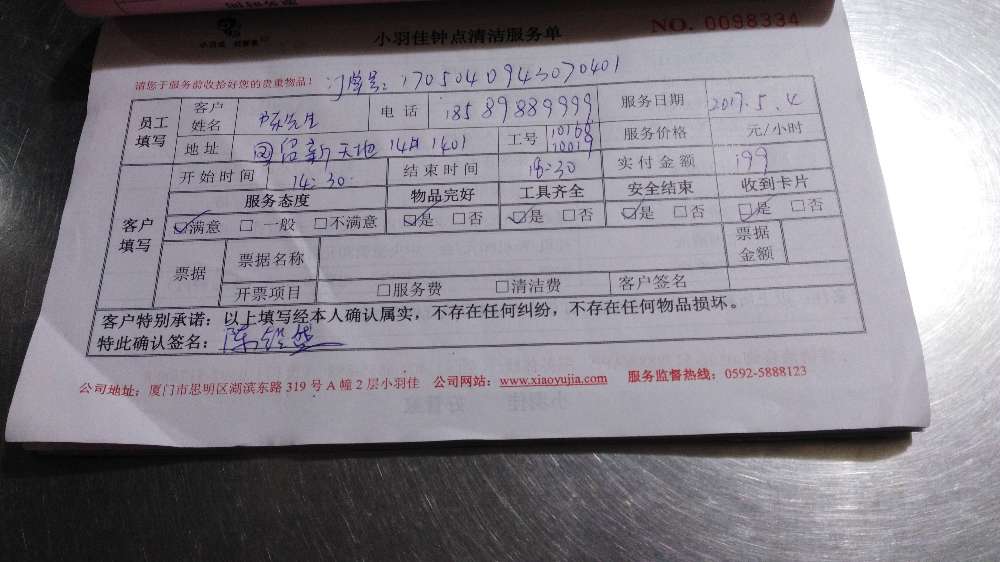 小羽佳 好管家
小羽佳钟点清洁服务单
NO. 0098334
请您于服务前收拾好您的贵重物品！
订单号：17050409943070401
员工填写
客户姓名 陈先生 电话 18589889999 服务日期 2017.5.4
地址 国贸新天地 1401 工号 10168 10019 服务价格 元/小时
客户填写
开始时间 14:30 结束时间 18:30 实付金额 199
服务态度 物品完好 工具齐全 安全结束 收到卡片
☑满意 □一般 □不满意 ☑是 □否 ☑是 □否 ☑是 □否 ☑是 □否
票据 票据名称 票据金额
开票项目 □服务费 □清洁费 客户签名
客户特别承诺：以上填写经本人确认属实，不存在任何纠纷，不存在任何物品损坏。
特此确认签名：陈
公司地址：厦门市思明区湖滨东路 319 号 A 幢 2 层小羽佳 公司网站：www.xiaoyujia.com 服务监督热线：0592-5888123